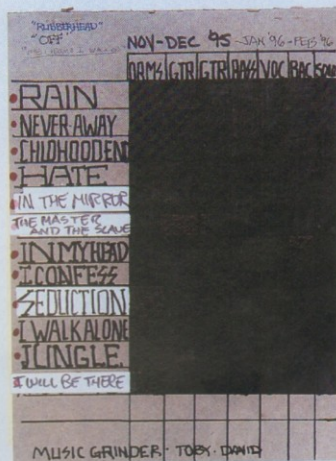 "RUBBERHEAD"
"OFF"
NOV-DEC '95 - JAN 96 - FEB '96
DRMS GTR GTR BASS VOC BAC SOLO
RAIN
NEVER AWAY
CHILDHOOD END
HATE
IN THE MIRROR
THE MASTER
AND THE SLAVE
IN MY HEAD
I CONFESS
SEDUCTION
I WALK ALONE
JUNGLE
I WILL BE THERE
MUSIC GRINDER · TOBY · DAVID